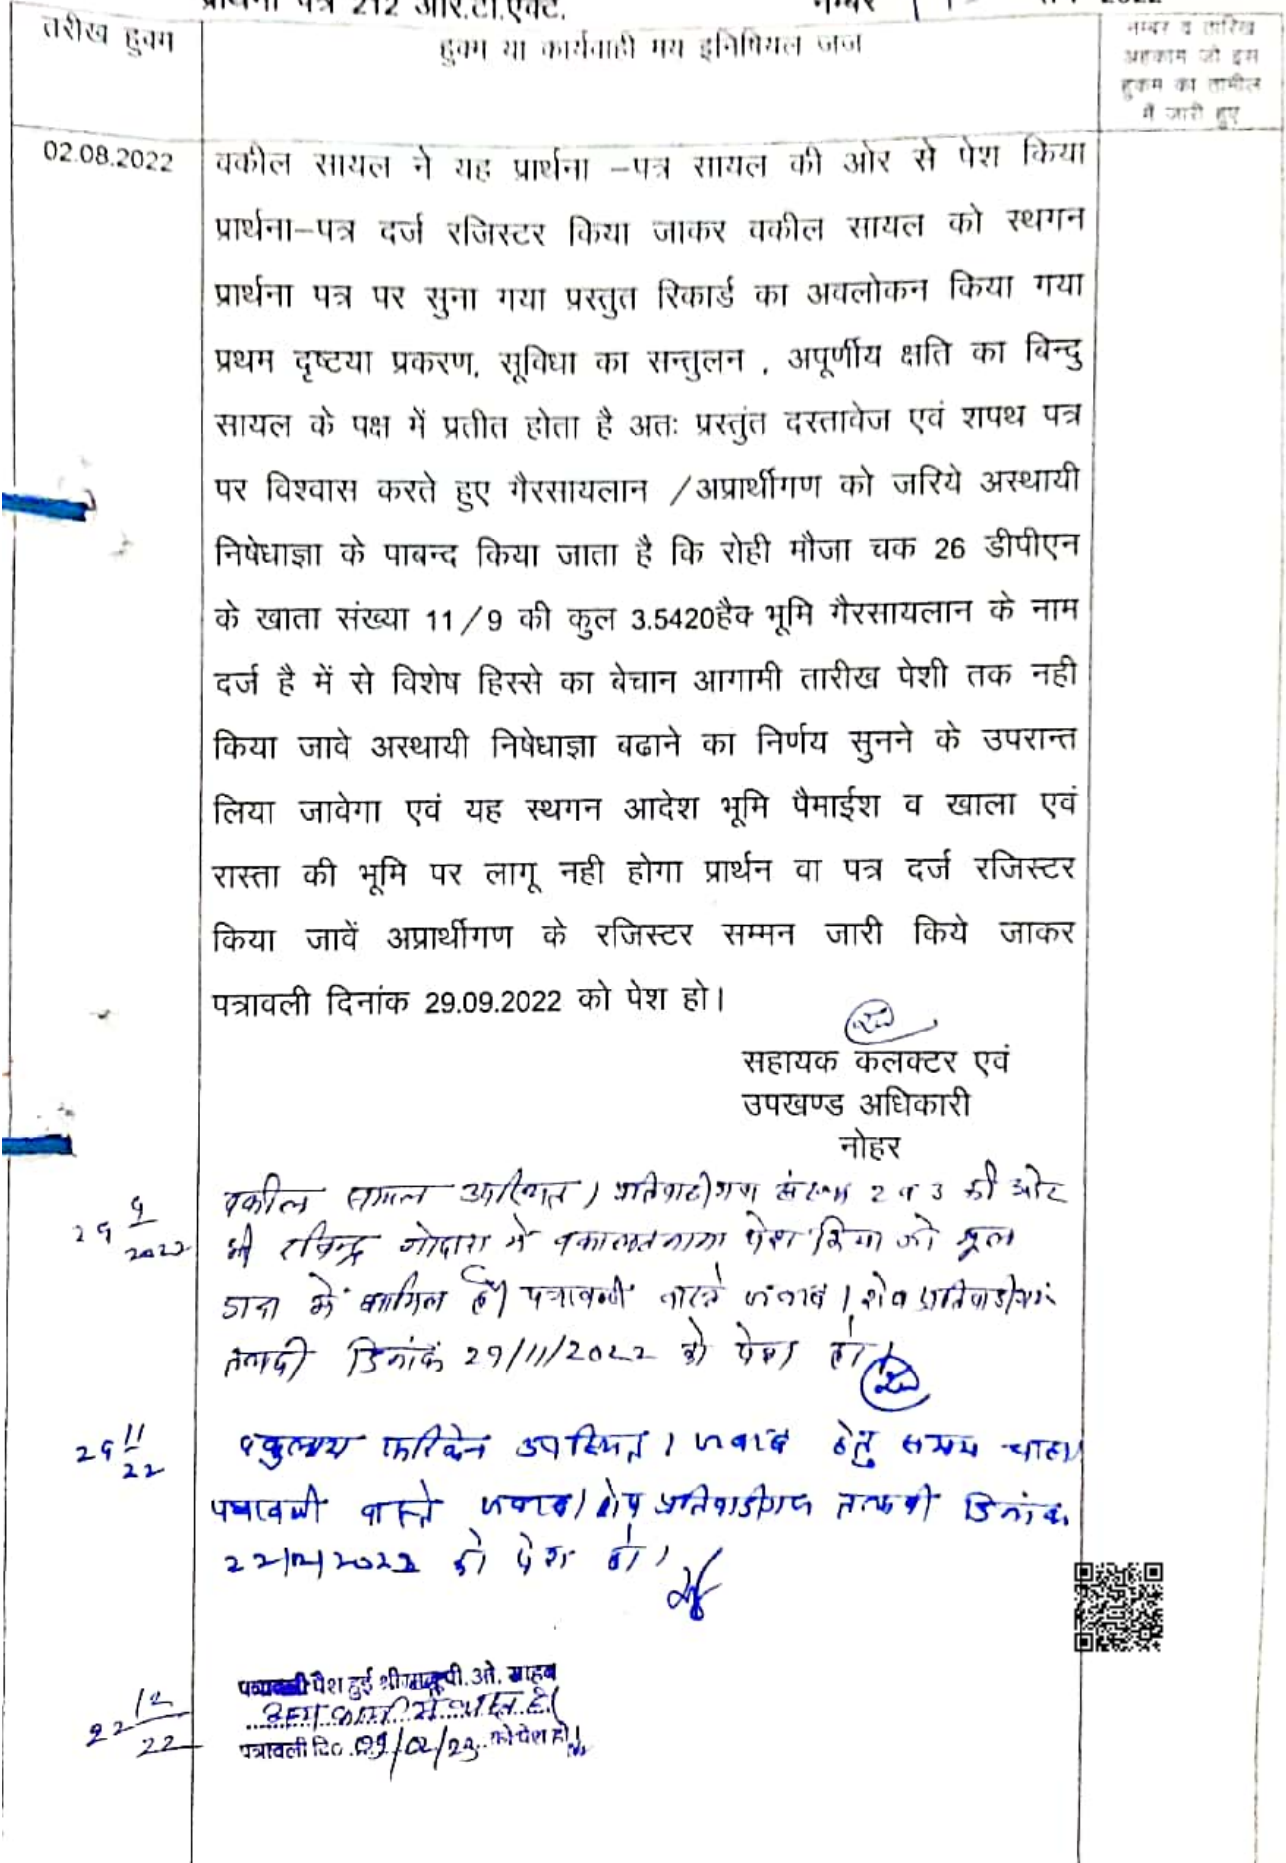 प्रार्थना पत्र 212 आर.टी.एक्ट. नम्बर 2022
तरीख हुक्म
हुक्म या कार्यवाही मय इनिषियल जज
नम्बर व तारिख
अहकाम जो इस
हुकम का तामील
में जारी हुए
02.08.2022
वकील सायल ने यह प्रार्थना –पत्र सायल की ओर से पेश किया
प्रार्थना–पत्र दर्ज रजिस्टर किया जाकर वकील सायल को स्थगन
प्रार्थना पत्र पर सुना गया प्रस्तुत रिकार्ड का अवलोकन किया गया
प्रथम दृष्टया प्रकरण, सूविधा का सन्तुलन , अपूर्णीय क्षति का बिन्दु
सायल के पक्ष में प्रतीत होता है अतः प्रस्तुंत दस्तावेज एवं शपथ पत्र
पर विश्वास करते हुए गैरसायलान /अप्रार्थीगण को जरिये अस्थायी
निषेधाज्ञा के पाबन्द किया जाता है कि रोही मौजा चक 26 डीपीएन
के खाता संख्या 11/9 की कुल 3.5420हैक भूमि गैरसायलान के नाम
दर्ज है में से विशेष हिस्से का बेचान आगामी तारीख पेशी तक नही
किया जावे अस्थायी निषेधाज्ञा बढाने का निर्णय सुनने के उपरान्त
लिया जावेगा एवं यह स्थगन आदेश भूमि पैमाईश व खाला एवं
रास्ता की भूमि पर लागू नही होगा प्रार्थन वा पत्र दर्ज रजिस्टर
किया जावें अप्रार्थीगण के रजिस्टर सम्मन जारी किये जाकर
पत्रावली दिनांक 29.09.2022 को पेश हो।
सहायक कलक्टर एवं
उपखण्ड अधिकारी
नोहर
29 9/2022
वकील सायल उपस्थित। प्रतिवादीगण संख्या 2 व 3 की ओर
श्री रविन्द्र गोदारा ने वकालतनामा पेश किया जो मूल
वाद में शामिल है। पत्रावली वास्ते जवाब। शेष प्रतिवादीगण
तलबी दिनांक 29/11/2022 को पेश हो।
29 11/22
वकुलाय फरिकेन उपस्थित। जवाब हेतु समय चाहा
पत्रावली वास्ते जवाब। शेष प्रतिवादीगण तलबी दिनांक
22/12/2022 को पेश हो।
22 12/22
पत्रावली पेश हुई श्रीमान् पी.ओ. साहब
पत्रावली दि0 को पेश हो।